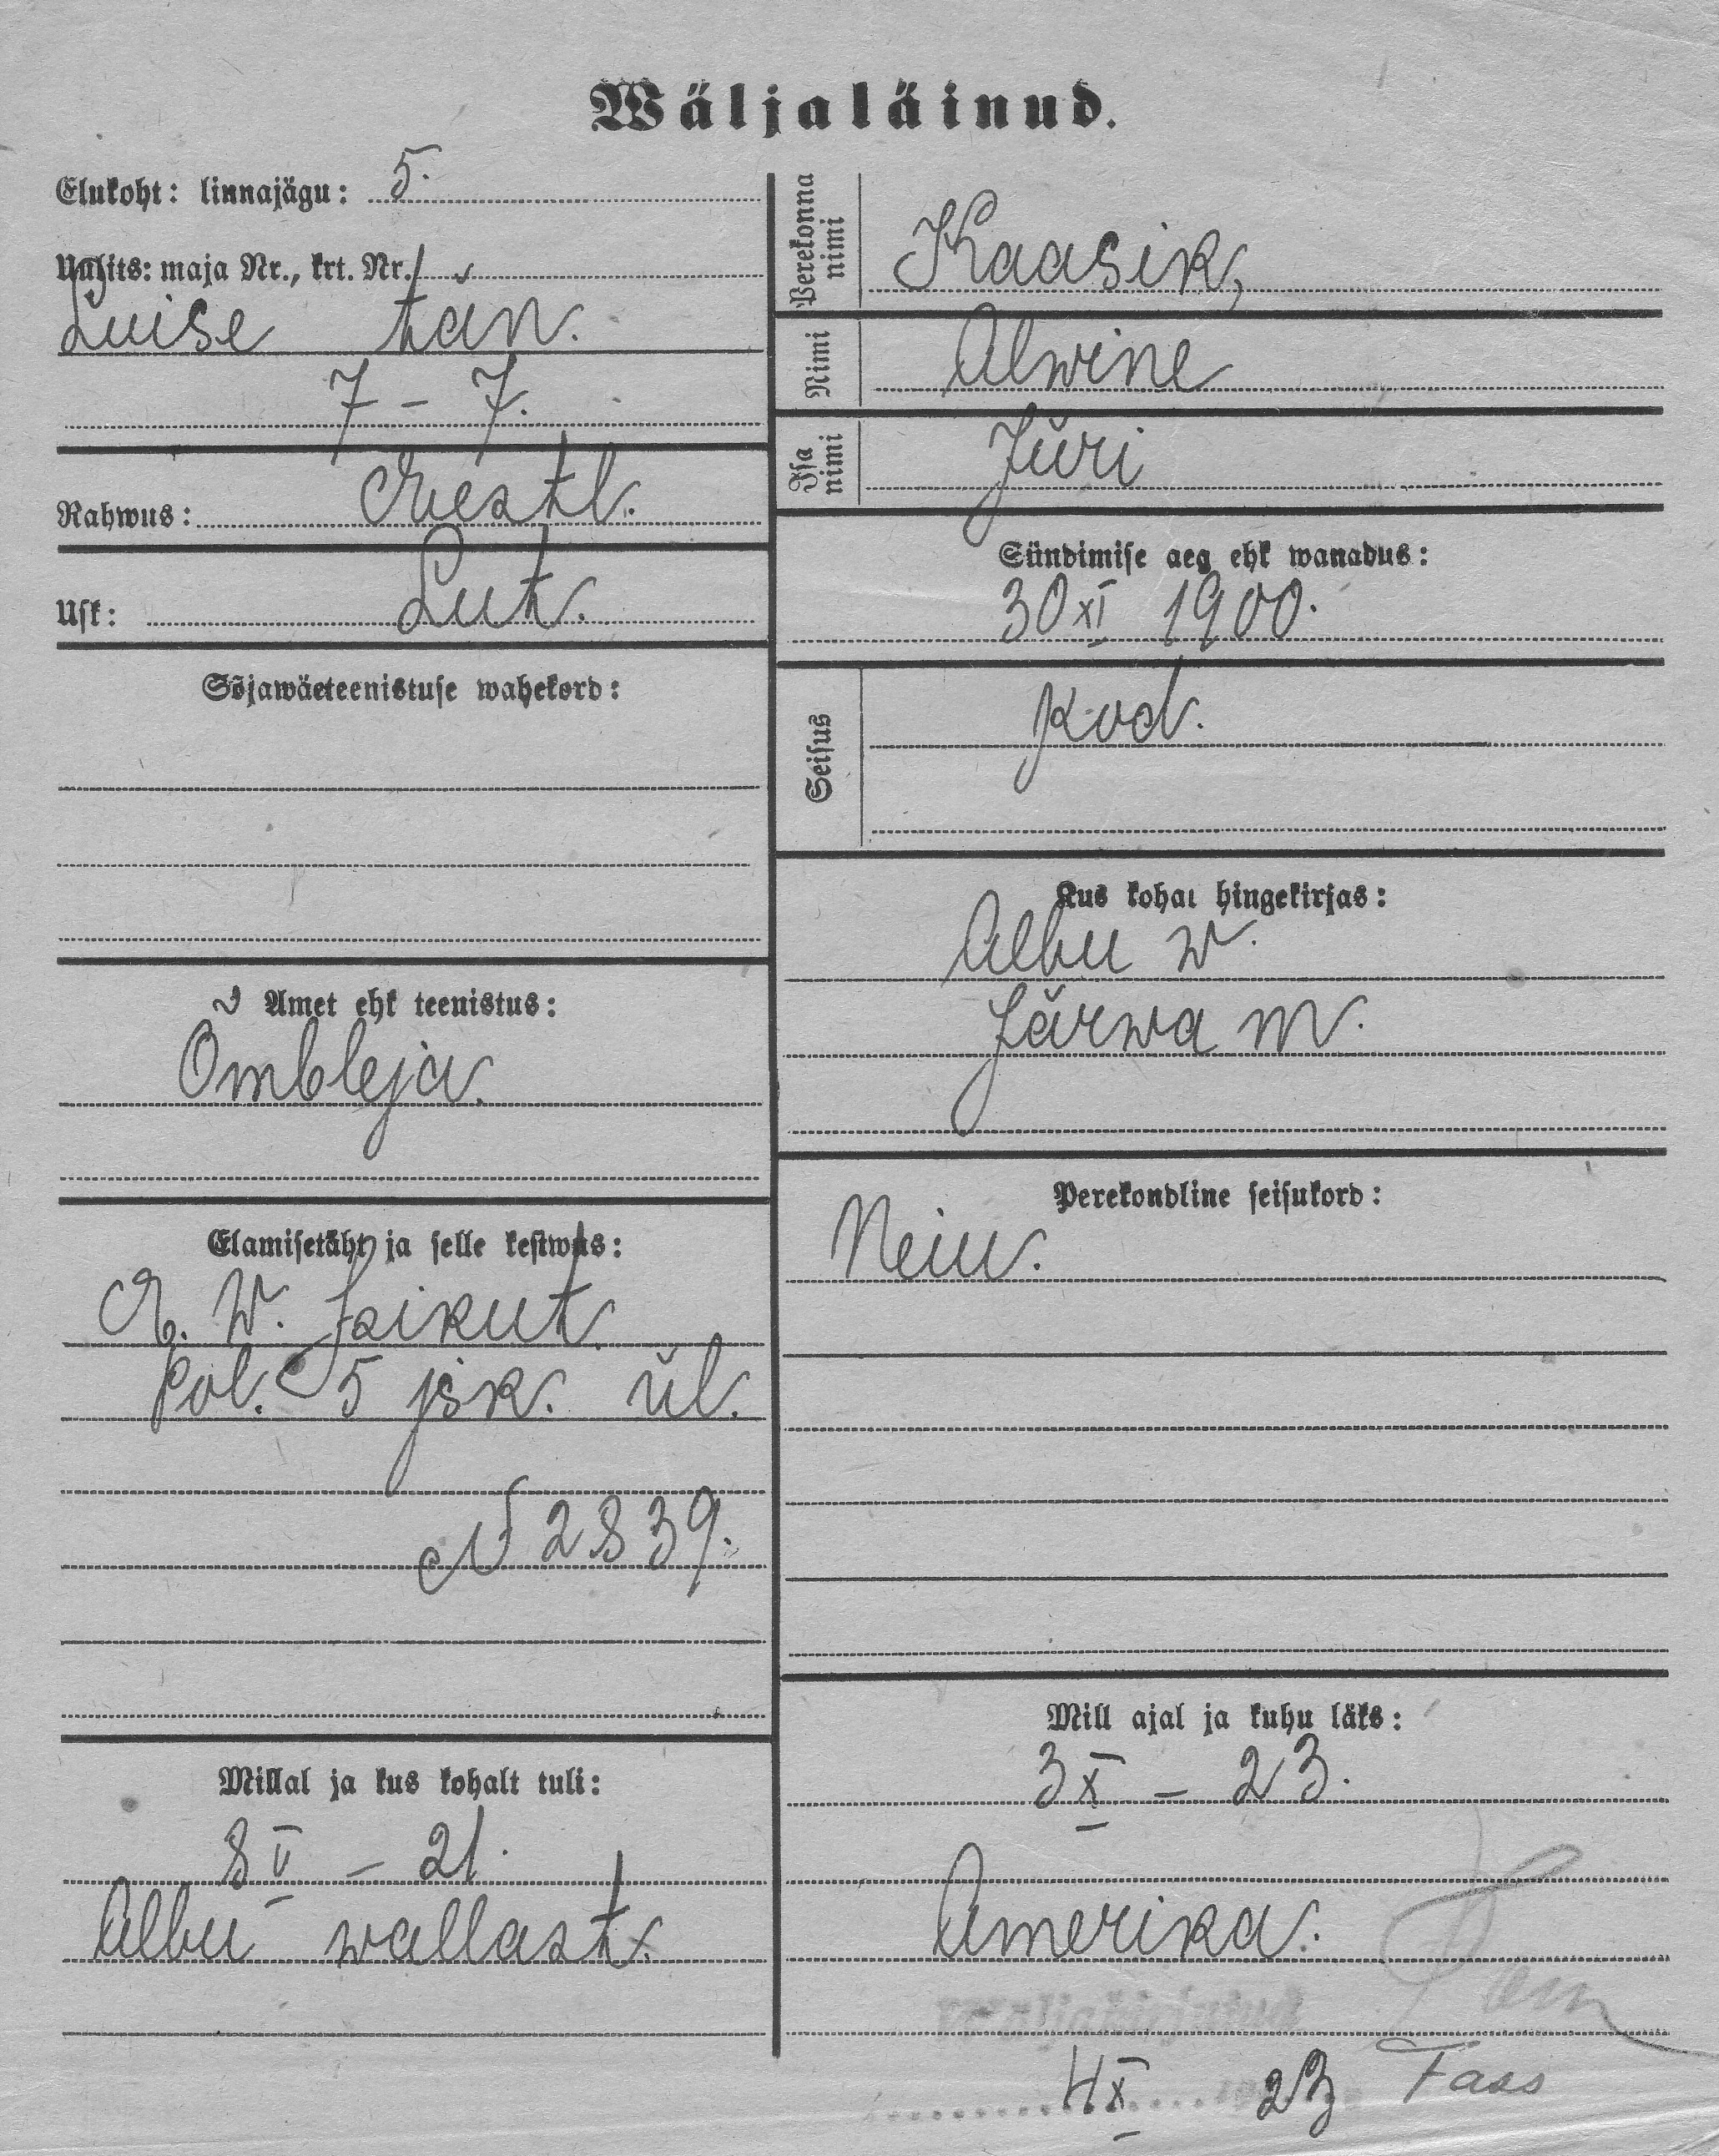 Wäljaläinud.
Elukoht: linnajägu: 5.
Uulits: maja Nr., krt. Nr.
Luise tän.
7 – 7.
Rahwus: Eestl.
Usk: Lut.
Sõjawäeteenistuse wahekord:
Amet ehk teenistus:
Ombleja.
Elamisetäht ja selle kestwus:
E. W. Isikut.
Pol. 5 jsk. ül.
N 2839.
Millal ja kus kohalt tuli:
8 V – 21.
Albu wallast.
Perekonna nimi
Kaasik,
Nimi
Alwine
Isa nimi
Jüri
Sündimise aeg ehk wanadus:
30 XI 1900.
Seisus
kod.
Kus kohal hingekirjas:
Albu w.
Järwa m.
Perekondline seisukord:
Neiu.
Mill ajal ja kuhu läks:
3 X – 23.
Amerika.
Wäljakirjutud
4 X 23 Tass